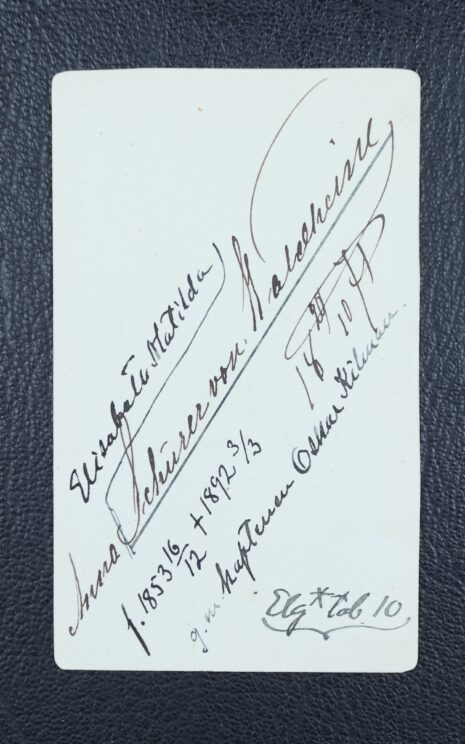 Elisabeth Matilda
Anna Schürer von Waldheim
18 20/10 71
f. 1853 16/12 + 1892 3/3
g.m. kaptenen Oskar Kilman.
Elg* tab. 10